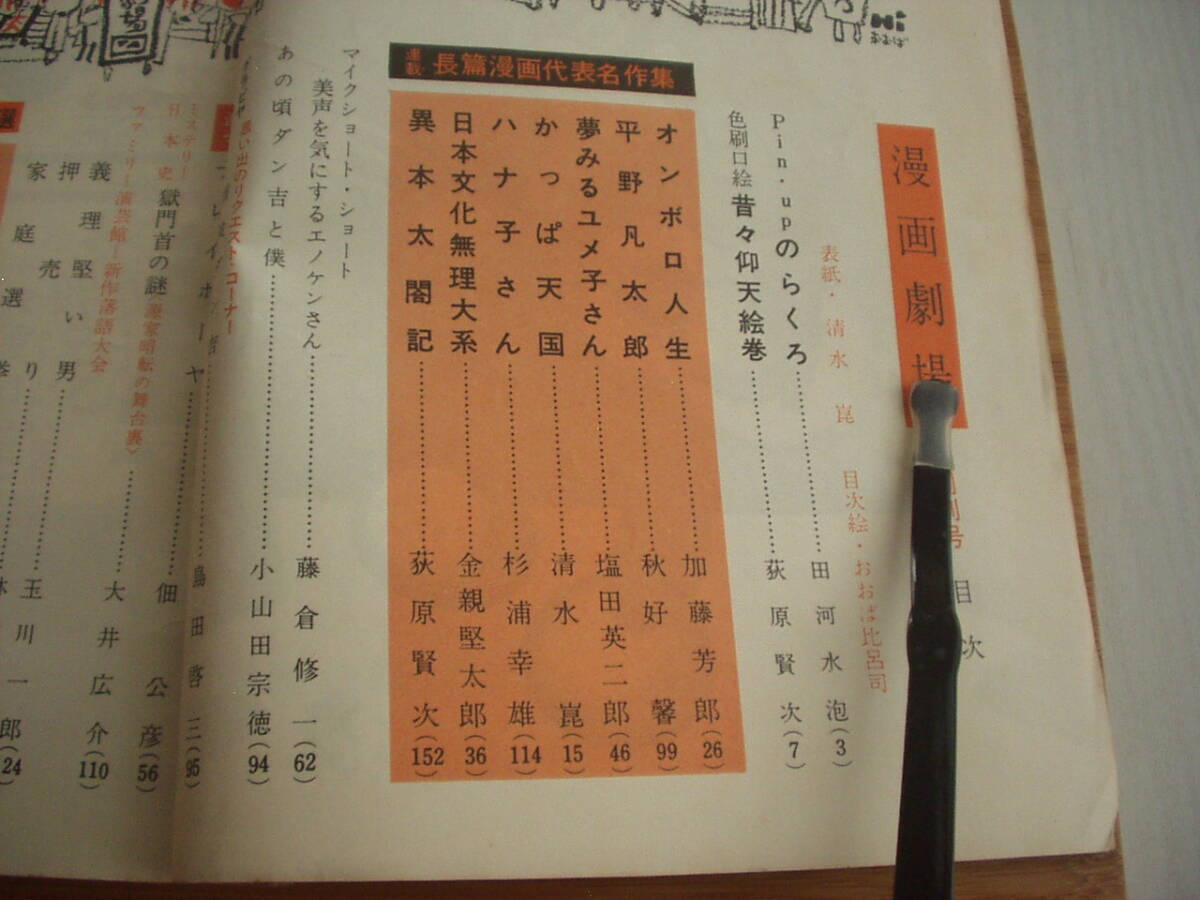 漫画劇場
目次
表紙・清水崑 目次絵・おおば比呂司
Pin・upのらくろ……田河水泡(3)
色刷口絵 昔々仰天絵巻……荻原賢次(7)
連載 長篇漫画代表名作集
オンボロ人生……加藤芳郎(26)
平野凡太郎……秋好馨(99)
夢みるユメ子さん……塩田英二郎(46)
かっぱ天国……清水崑(15)
ハナ子さん……杉浦幸雄(114)
日本文化無理大系……金親堅太郎(36)
異本太閤記……荻原賢次(152)
マイクショート・ショート
美声を気にするエノケンさん……藤倉修一(62)
あの頃ダン吉と僕……小山田宗徳(94)
思い出のリクエスト・コーナー
島田啓三(95)
ミステリー日本史 獄門首の謎……佃公彦(56)
ファミリー演芸館―新作落語大会
義理堅い男……大井広介(110)
押売り……玉川一郎(24)
家庭選
おおば